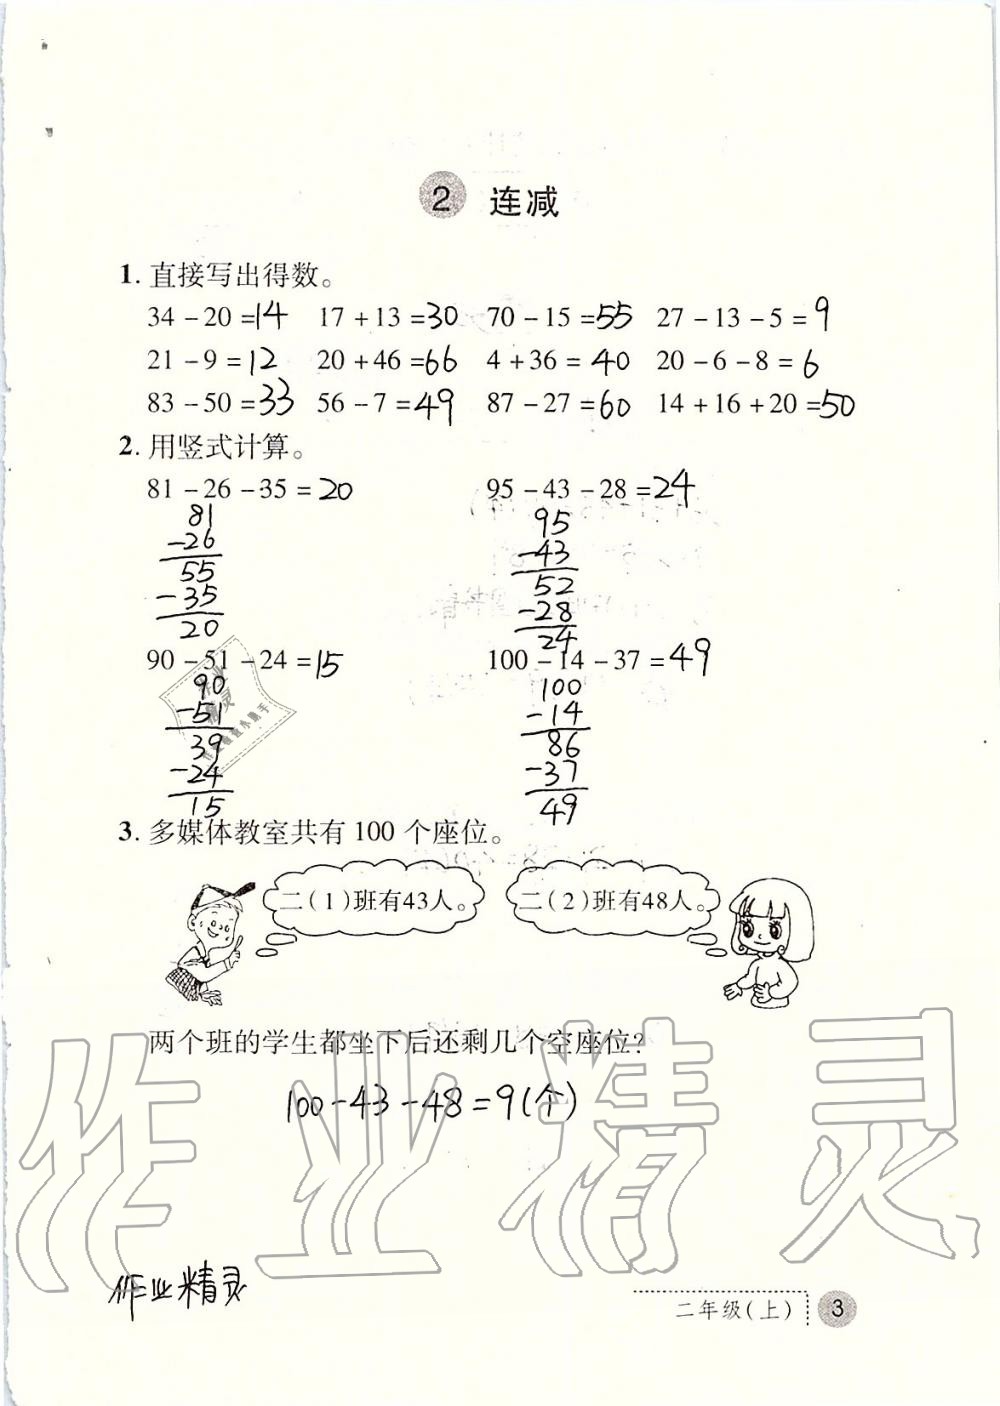 2 连减
1. 直接写出得数。
34 - 20 = 14 17 + 13 = 30 70 - 15 = 55 27 - 13 - 5 = 9
21 - 9 = 12 20 + 46 = 66 4 + 36 = 40 20 - 6 - 8 = 6
83 - 50 = 33 56 - 7 = 49 87 - 27 = 60 14 + 16 + 20 = 50
2. 用竖式计算。
81 - 26 - 35 = 20 95 - 43 - 28 = 24
81 95
-26 -43
55 52
-35 -28
20 24
90 - 51 - 24 = 15 100 - 14 - 37 = 49
90 100
-51 -14
39 86
-24 -37
15 49
3. 多媒体教室共有 100 个座位。
二(1)班有43人。 二(2)班有48人。
两个班的学生都坐下后还剩几个空座位?
100 - 43 - 48 = 9(个)
作业精灵
作业精灵
二年级(上) 3